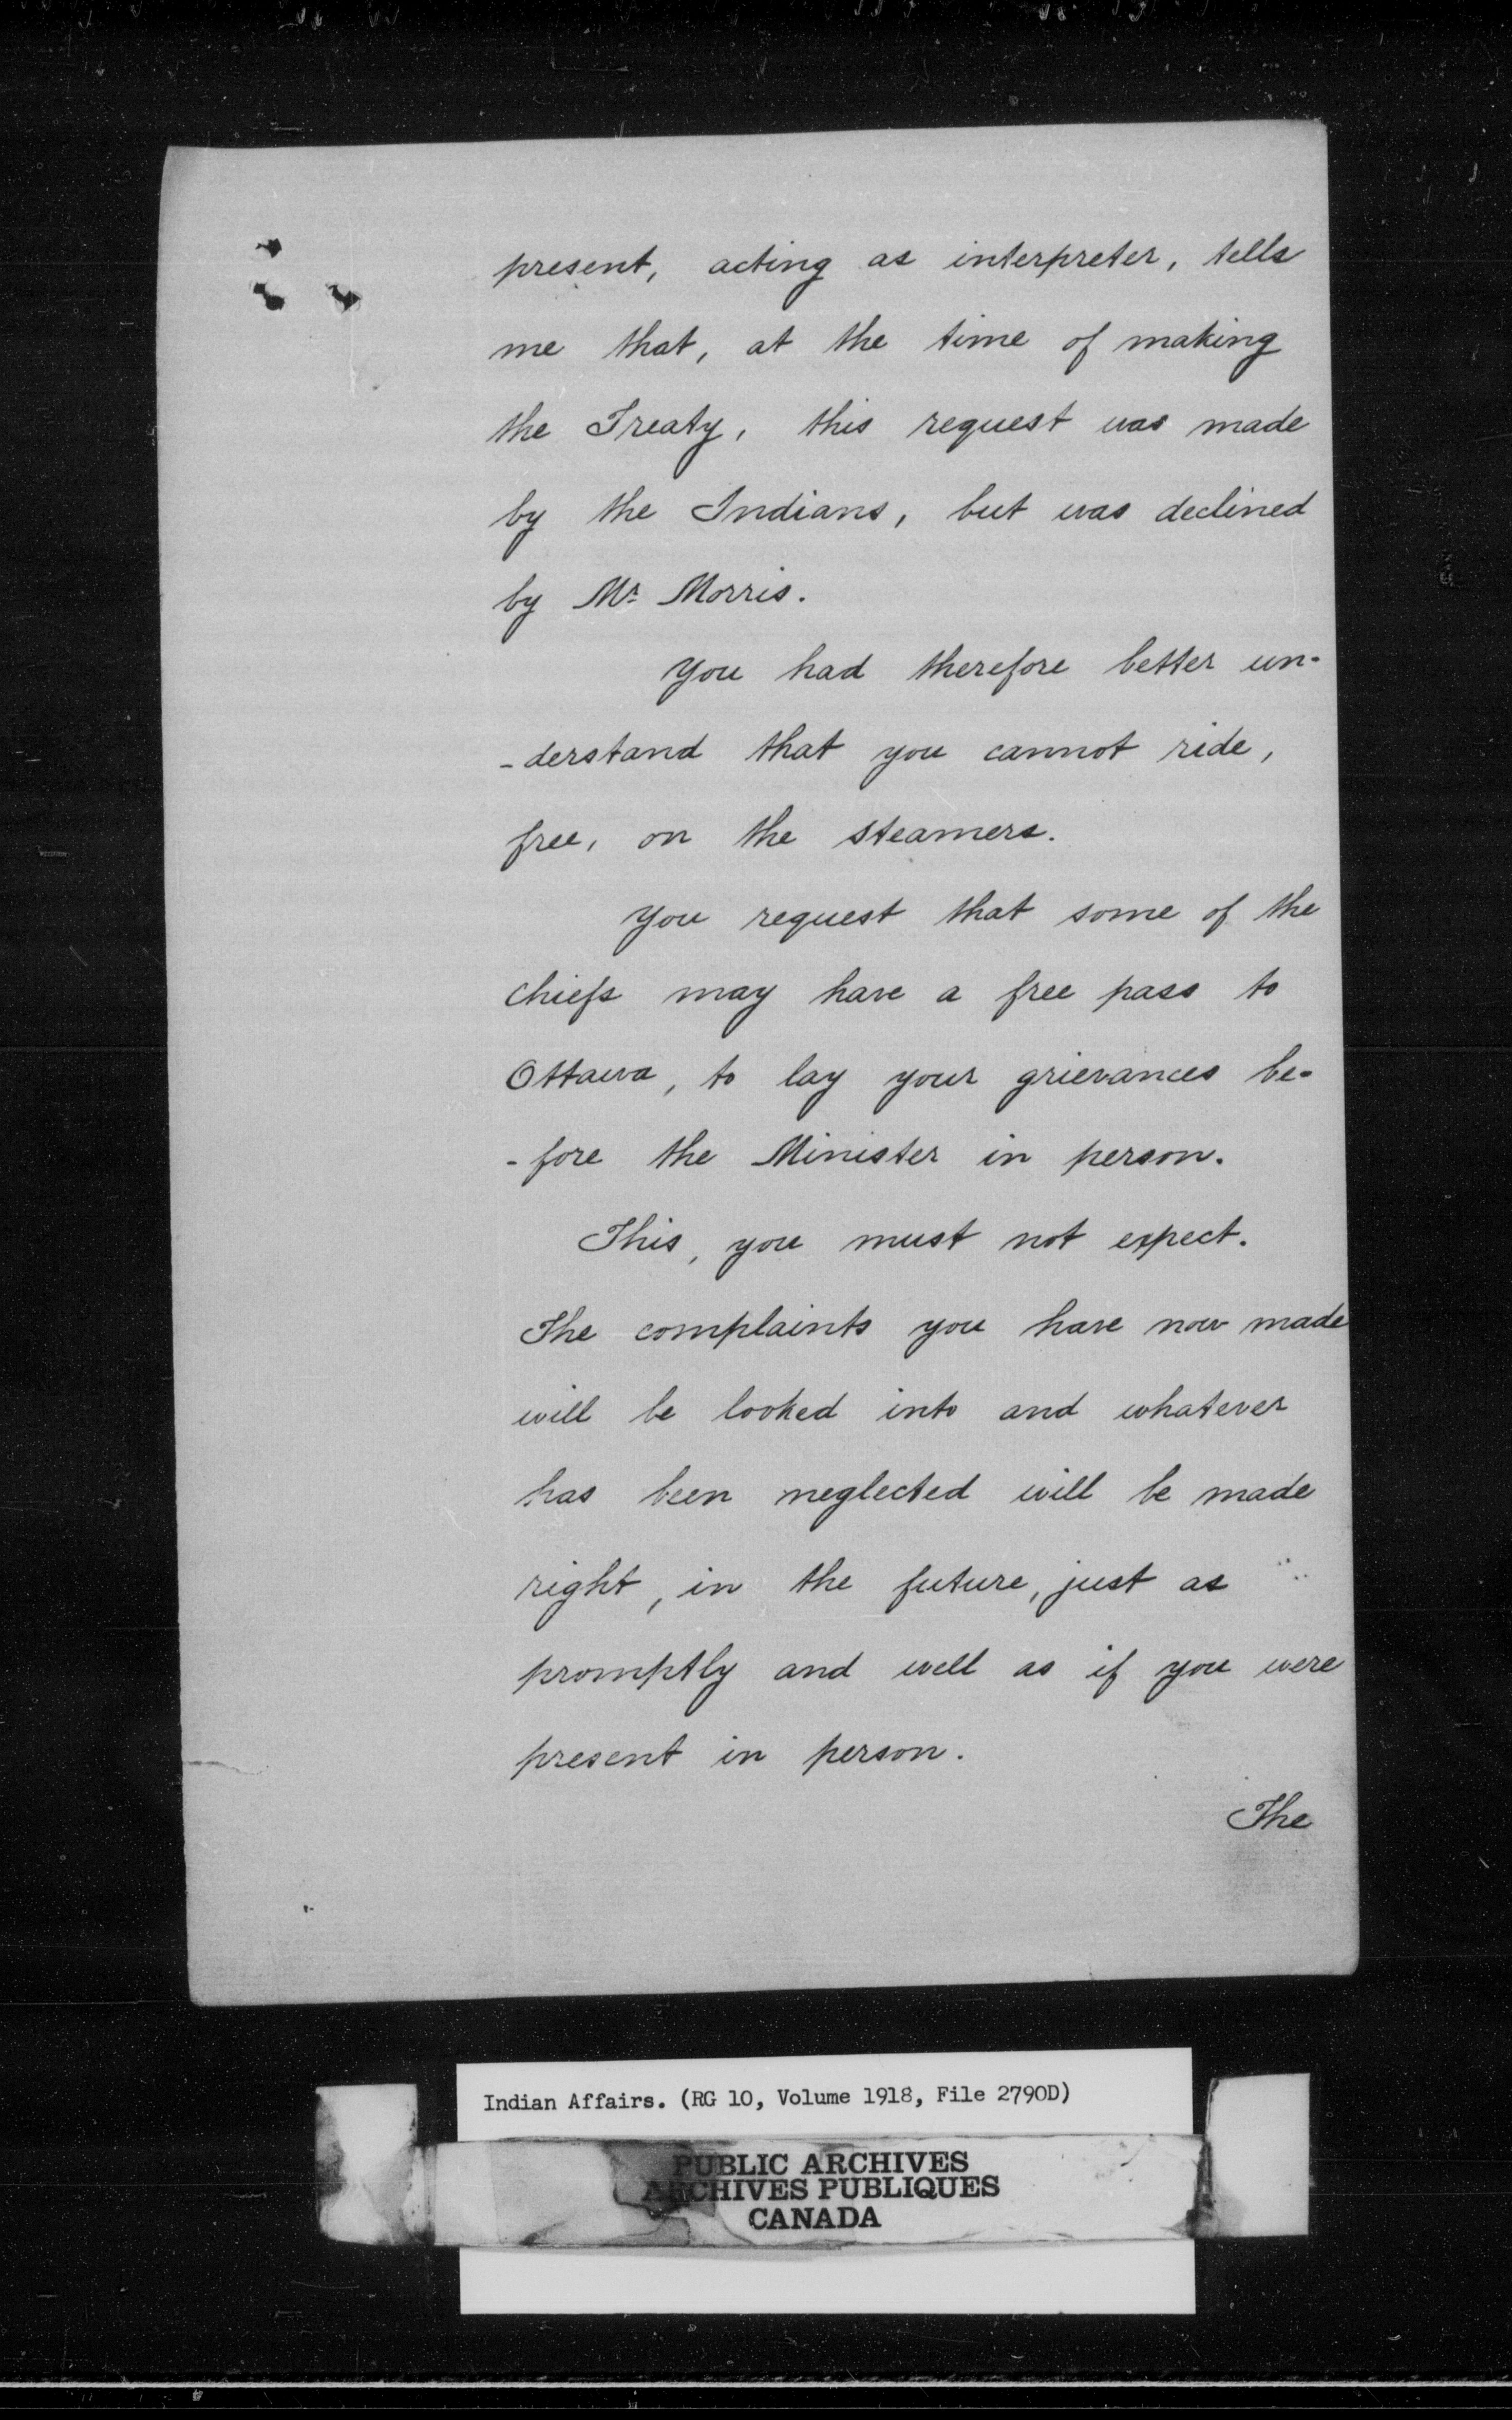 present, acting as interpreter, tells
me that, at the time of making
the Treaty, this request was made
by the Indians, but was declined
by Mr. Morris.
You had therefore better un-
-derstand that you cannot ride,
free, on the steamers.
You request that some of the
chiefs may have a free pass to
Ottawa, to lay your grievances be-
-fore the Minister in person.
This, you must not expect.
The complaints you have now made
will be looked into and whatever
has been neglected will be made
right, in the future, just as
promptly and well as if you were
present in person.
The
Indian Affairs. (RG 10, Volume 1918, File 2790D)
PUBLIC ARCHIVES
ARCHIVES PUBLIQUES
CANADA